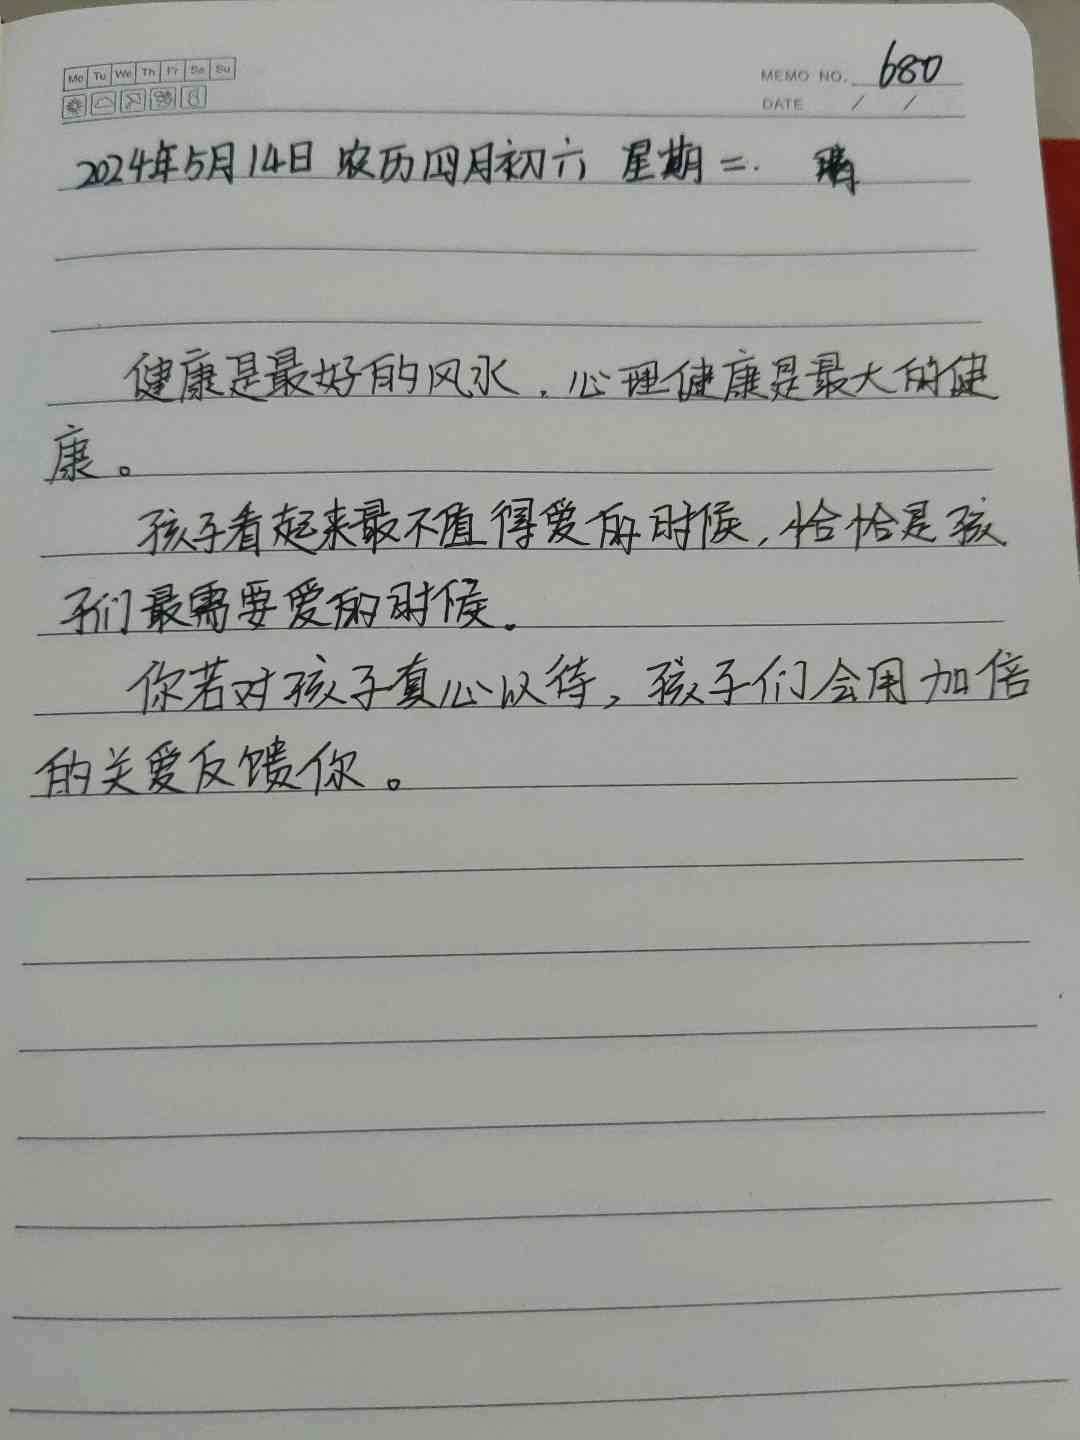 Mo Tu We Th Fr Sa Su
MEMO NO. 680
DATE / /
2024年5月14日 农历四月初六 星期二. 晴
健康是最好的风水，心理健康是最大的健
康。
孩子看起来最不值得爱的时候，恰恰是孩
子们最需要爱的时候.
你若对孩子真心以待，孩子们会用加倍
的关爱反馈你。